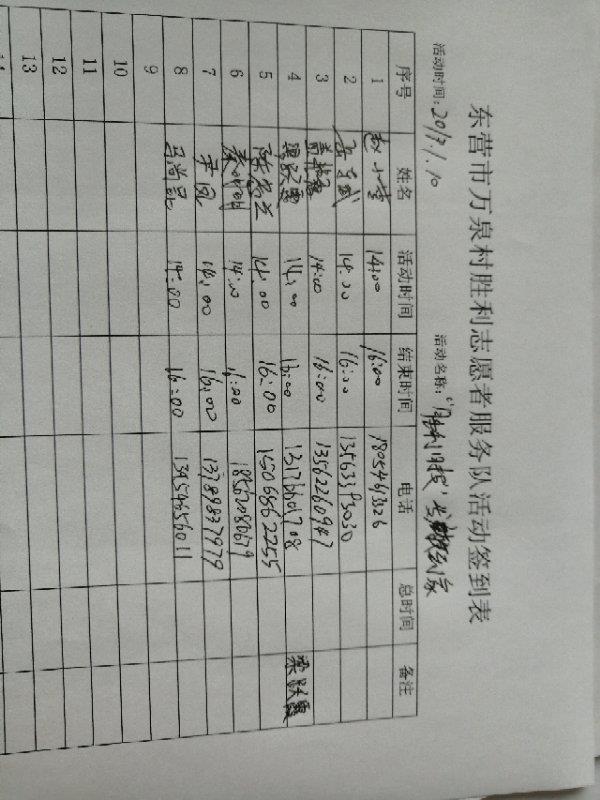 东营市万泉村胜利志愿者服务队活动签到表
活动时间: 2017.1.10 活动名称:
序号 姓名 活动时间 结束时间 电话 总时间 备注
1 赵 14:00 16:00 18054613326
2 14:00 16:00 13563393030
3 14:00 16:00 13562260947
4 梁跃霞 14:00 16:00 梁跃霞
5 14:00 16:00 15066862255
6 14:00 16:00 18562086679
7 平凤 14:00 16:00 13789837979
8 马尚昆 14:00 16:00 13954656011
9
10
11
12
13
14